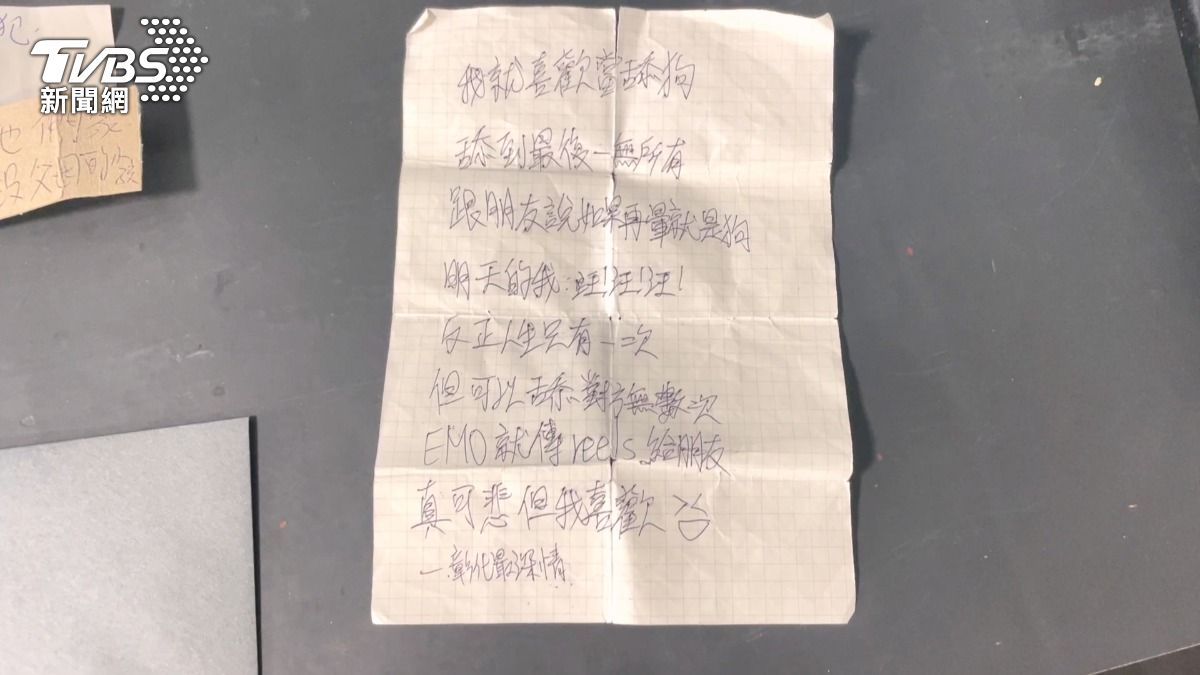 犯.
TVBS
新聞網
他們家
沒父母的孩
我就喜歡當舔狗
舔到最後一無所有
跟朋友說如果再暈就是狗
明天的我:汪!汪!汪!
反正人生只有一次
但可以舔對方無數次
EMO就傳reels給朋友
真可悲但我喜歡
—彰化最深情